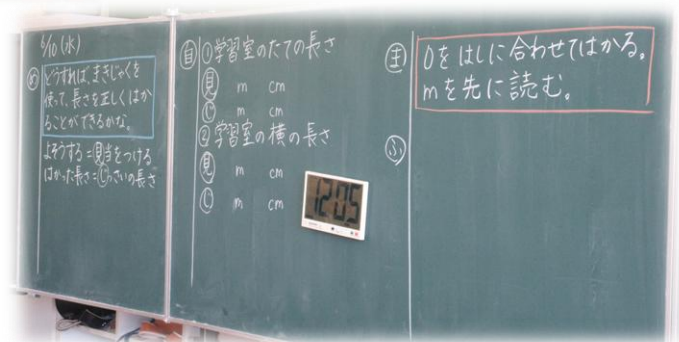 6/10(水)
め どうすれば、まきじゃくを
使って、長さを正しくはか
ることができるかな。
よそうする=見当をつける
はかった長さ=じっさいの長さ
自 ①学習室のたての長さ
見 m cm
じ m cm
②学習室の横の長さ
見 m cm
じ m cm
12:05
ま 0をはしに合わせてはかる。
mを先に読む。
ふ